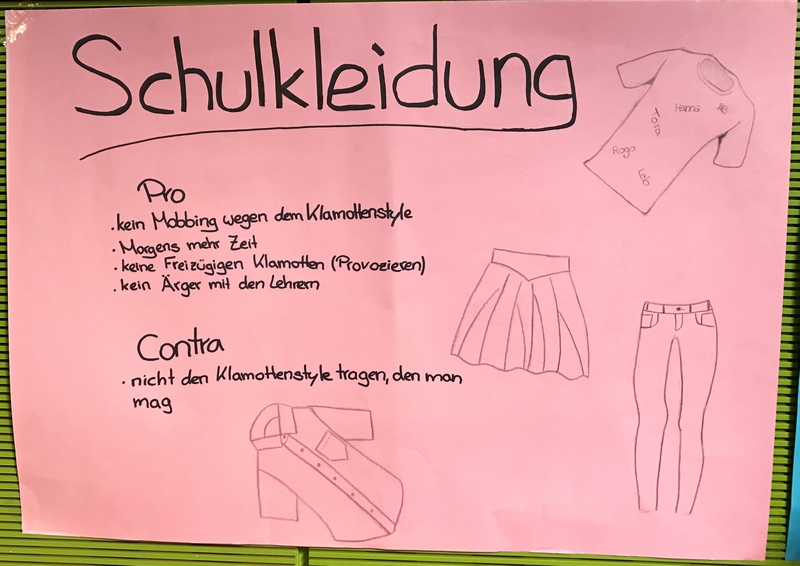 Schulkleidung
Pro
. kein Mobbing wegen dem Klamottenstyle
. Morgens mehr Zeit
. keine Freizügigen Klamotten (Provozieren)
. kein Ärger mit den Lehrern
Contra
. nicht den Klamottenstyle tragen, den man
mag
Hanna